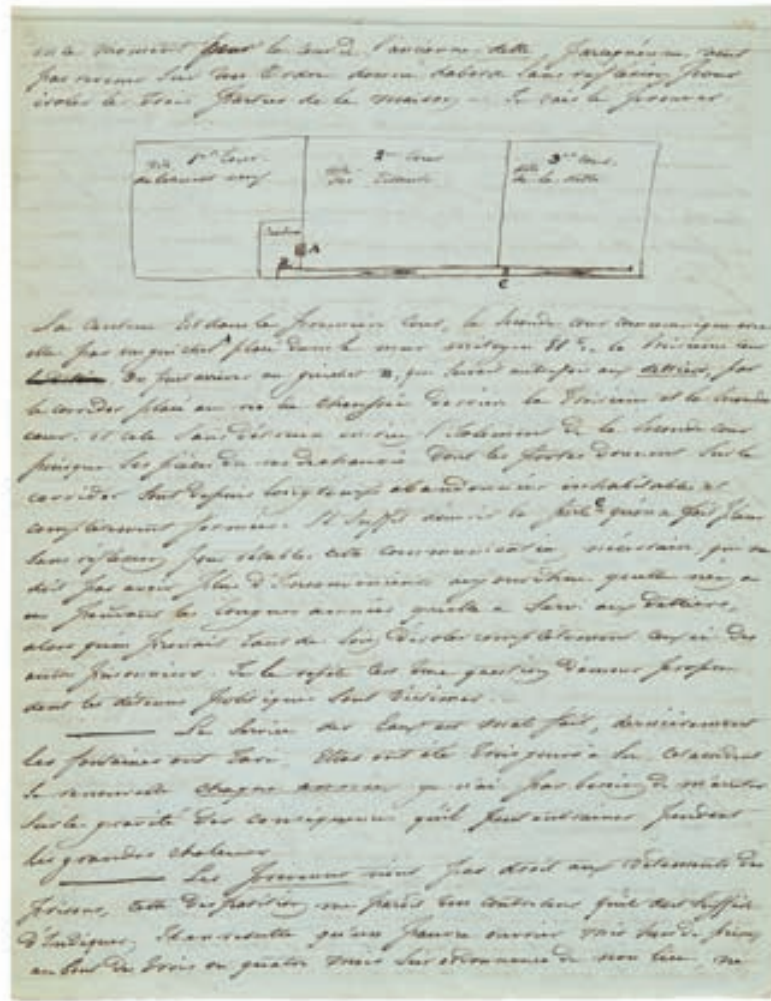 en ce moment pour la cour de l'ancienne dette,
par revenir sur un ordre donné d'abord sans réflexion pour
isoler les trois parties de la maison. Je vais le prouver.
1ère Cour 2me Cour 3me Cour
dite du bâtiment neuf dite des dite de la dette
A
B
C
La cantine est dans la première cour, la seconde cour communique avec
elle par un guichet placé dans le mur mitoyen la troisième cour
arriver au guichet B, qui servait autrefois aux dettiers, par
le corridor placé au rez de chaussée derrière la troisième et la seconde
cour. et cela sans détruire en rien l'isolement de la seconde cour
puisque les pièces du rez de chaussée dont les portes donnent sur le
corridor sont depuis longtemps abandonnées inhabitables et
complètement fermées. Il suffit d'ouvrir la porte C qu'on a fait placer
sans réflexion pour rétablir cette communication nécessaire, qui ne
doit pas avoir plus d'inconvénients aujourd'hui qu'elle n'en a
eu pendant les longues années qu'elle a servi aux dettiers,
alors qu'on prenait tant de soin d'isoler complètement ceux-ci des
autres prisonniers. Je le répète c'est une question d'amour propre
dont les détenus politiques sont victimes.
Le service des eaux est mal fait, dernièrement
les fontaines ont tari. Elles ont été trois jours à sec
se renouvelle chaque année je n'ai pas besoin d'insister
sur la gravité des conséquences qu'il peut entrainer pendant
les grandes chaleurs.
Les prévenus n'ont pas droit aux vêtements de
prison, cette disposition me paraît un contresens qu'il doit suffire
d'indiquer, Il en résulte qu'un pauvre ouvrier mis hors de prison
au bout de trois ou quatre mois sur ordonnance de non lieu, ne